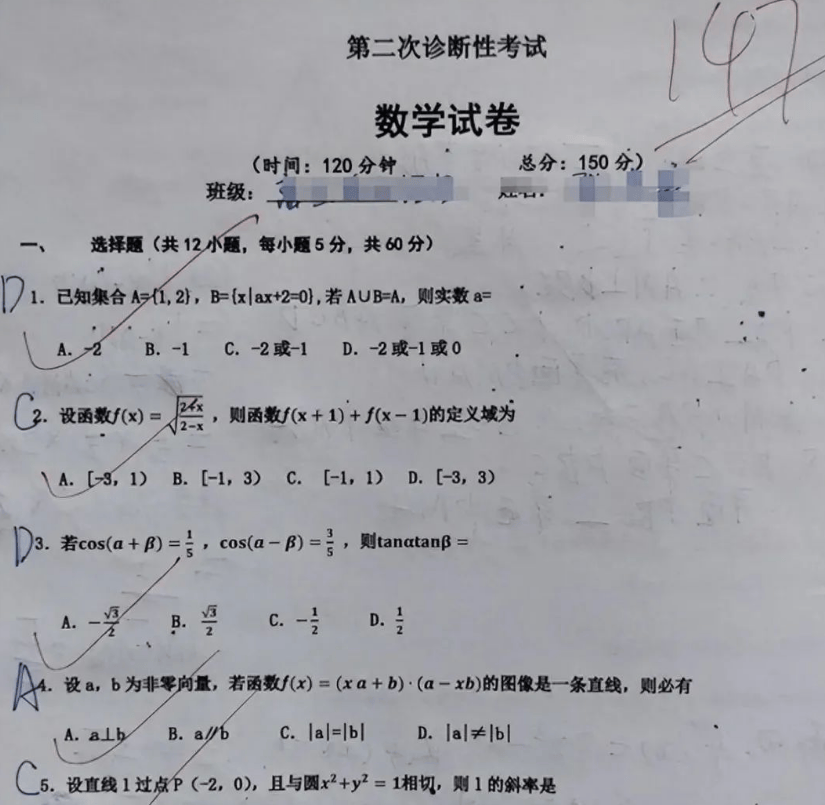 147
第二次诊断性考试
数学试卷
（时间：120分钟 总分：150分）
班级：
一、 选择题（共12小题，每小题5分，共60分）
D 1. 已知集合 A={1, 2}，B={x|ax+2=0}, 若 A∪B=A，则实数 a=
A. -2 B. -1 C. -2 或-1 D. -2 或-1 或 0
C 2. 设函数f(x) = √((2+x)/(2−x))，则函数f(x + 1) + f(x − 1)的定义域为
A. [-3, 1) B. [-1, 3) C. [-1, 1) D. [-3, 3)
D 3. 若cos(α + β) = 1/5，cos(α − β) = 3/5，则tanαtanβ =
A. −√3/2 B. √3/2 C. −1/2 D. 1/2
A 4. 设 a，b 为非零向量，若函数f(x) = (x a + b)·(a − xb)的图像是一条直线，则必有
A. a⊥b B. a∥b C. |a|=|b| D. |a|≠|b|
C 5. 设直线 l 过点 P（-2，0），且与圆x²+y² = 1相切，则 l 的斜率是